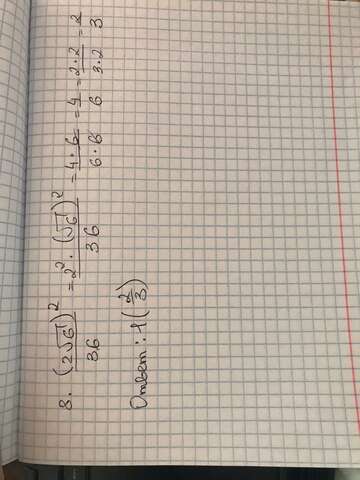 3. (2√6)²/36 = 2² · (√6)²/36 = 4 · 6/6 · 6 = 4/6 = 2 · 2/3 · 2 = 2/3
Ответ: 1 (2/3)